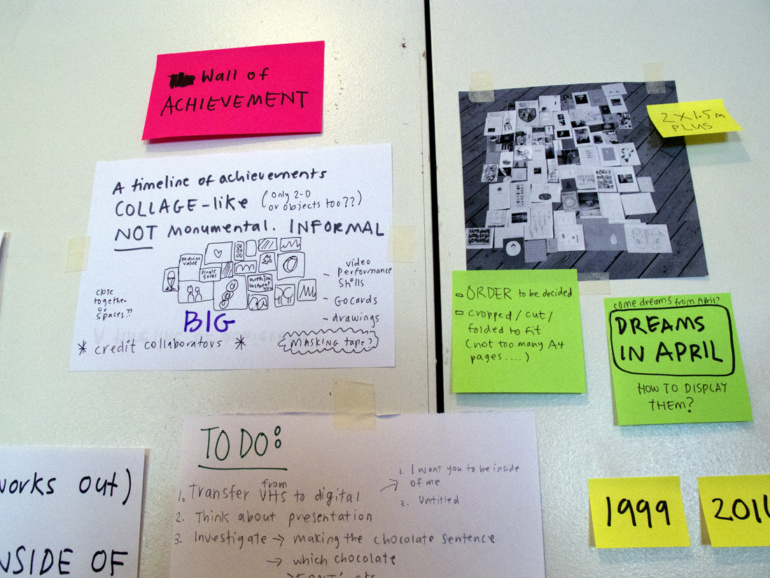 Wall of
ACHIEVEMENT
A timeline of achievements
COLLAGE-like (only 2-D
or objects too??)
NOT monumental. INFORMAL
close
together
or
spaces??
BIG
- video
Performance
Stills
- Gocards
- drawings
* credit collaborators *
(MASKING tape?)
2 X 1.5 m
PLUS
- ORDER to be decided
- cropped / cut /
folded to fit
(not too many A4
pages....)
some dreams from April?
DREAMS
IN APRIL
HOW TO DISPLAY
THEM?
TO DO:
1. Transfer from VHS to digital
→ 1. I want you to be inside
of me
2. Untitled
2. Think about presentation
3. Investigate → making the chocolate sentence
→ which chocolate
works out)
NSIDE OF
1999
201